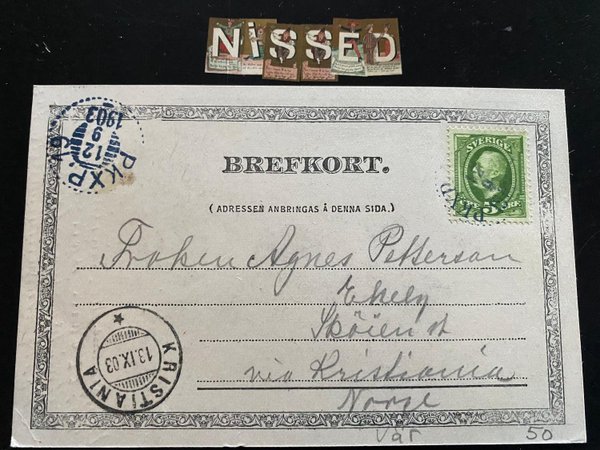 NISSED
PKXP. 19
12
9
1903
BREFKORT.
( ADRESSEN ANBRINGAS Å DENNA SIDA.)
SVERIGE
5 ÖRE
PKXP
Froken Agnes Petterson
Ekely
Sköien st
via Kristiania
Norge
KRISTIANIA
13.IX.03
Vår 50